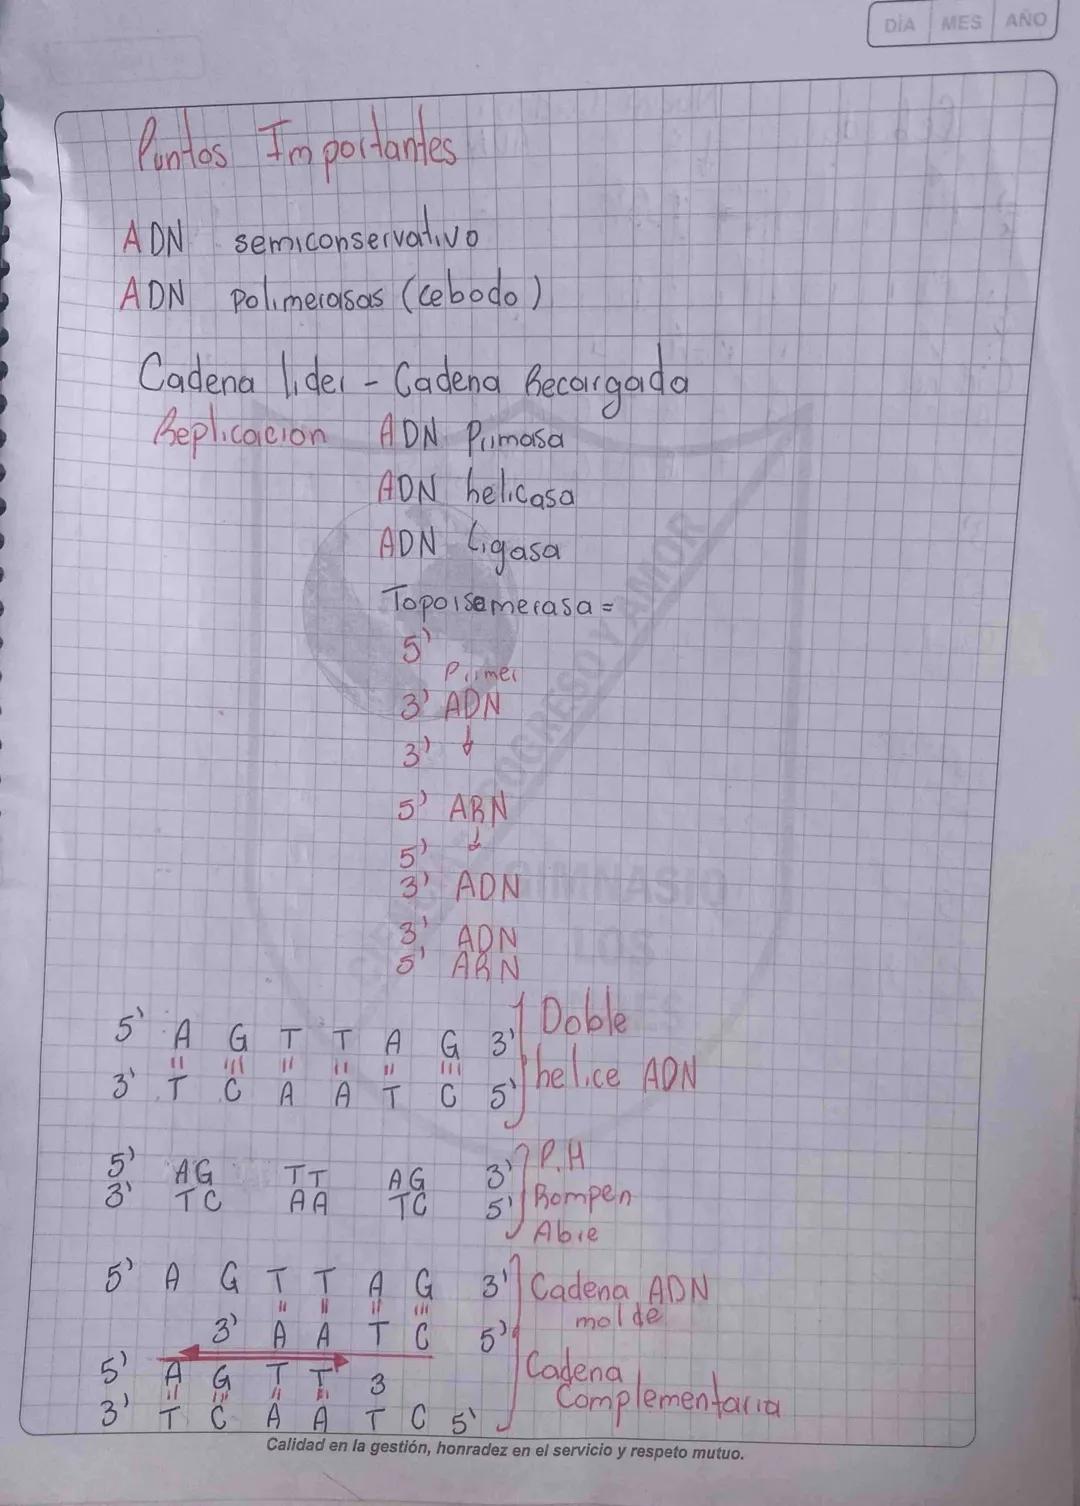 DÍA MES AÑO
Puntos Importantes
ADN semiconservativo
ADN polimerasas (cebodo)
Cadena lider - Cadena Recargada
Replicacion ADN Primasa
ADN helicasa
ADN Ligasa
Topoisemerasa =
5'
Primer
3' ADN
3' ↓
5' ARN
5' ↓
3' ADN
3' ADN
5' ARN
5' A G T T A G 3' Doble
3' T C A A T C 5' helice ADN
5' AG TT AG 3' P.H
3' TC AA TC 5' Rompen
Abre
5' A G T T A G 3' Cadena ADN
molde
3' A A T C 5'
5' A G T T 3 Cadena
3' T C A A T C 5' Complementaria
Calidad en la gestión, honradez en el servicio y respeto mutuo.
PROGRESO Y AMOR
GIMNASIO
LOS